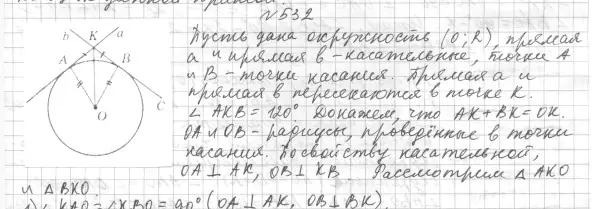 №532
b K a
A B
O
C
Пусть дана окружность (O; R), прямая
a и прямая в - касательные, точки A
и B - точки касания. Прямая a и
прямая в пересекаются в точке K.
∠ AKB = 120°. Докажем, что AK + BK = OK.
OA и OB - радиусы, проведённые в точки
касания. По свойству касательной,
OA ⊥ AK, OB ⊥ KB. Рассмотрим △ AKO
и △ BKO.
∠ KAO = ∠KBO = 90° (OA ⊥ AK, OB ⊥ BK)